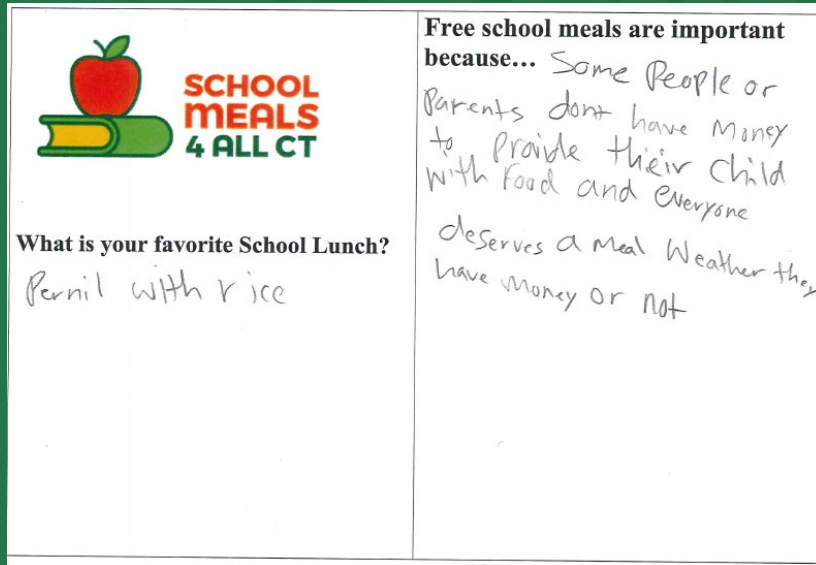 SCHOOL
MEALS
4 ALL CT
What is your favorite School Lunch?
Pernil with rice
Free school meals are important
because... Some People or
Parents dont have Money
to Provide thier child
with Food and everyone
deserves a meal Weather they
have money or not